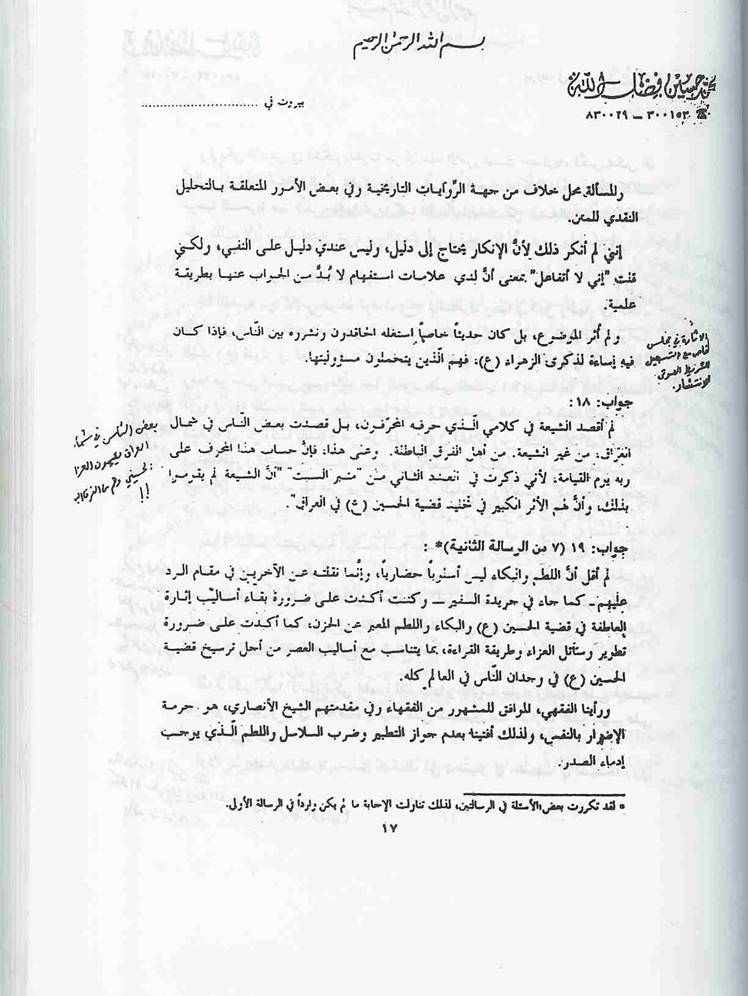 بسم الله الرحمن الرحيم
محمد حسين فضل الله
☎ ٣٠٠١٥٣ – ٨٣٠٠٢٩
بيروت في ..............................
والمسألة محل خلاف من جهة الرّوايات التاريخية وفي بعض الأمور المتعلقة بالتحليل
النقدي للمتن.
إنني لم أنكر ذلك لأنَّ الإنكار يحتاج إلى دليل، وليس عندي دليل على النفي، ولكني
قلت "إني لا أتفاعل" بمعنى أنَّ لدي علامات استفهام لا بُدَّ من الجواب عنها بطريقة
علمية.
ولم أُثر الموضوع، بل كان حديثاً خاصاً استغله الحاقدون ونشروه بين النّاس، فإذا كان
فيه إساءة لذكرى الزهراء (ع)، فهم الّذين يتحملون مسؤوليتها.
الإثارة في مجلس
خاص مع التسجيل
للشريط الصوتي
للانتشار.
جواب: ١٨:
لم أقصد الشيعة في كلامي الّذي حرفه المحرّفون، بل قصدت بعض النّاس في شمال
العراق، من غير الشيعة. من أهل الفرق الباطنة. وعلى هذا، فإنَّ حساب هذا المحرف على
ربه يوم القيامة، لأني ذكرت في العدد الثاني من "منبر السبت" "أنَّ الشيعة لم يقوموا
بذلك، وأنَّ لهم الأثر الكبير في تخليد قضية الحسين (ع) في العراق".
بعض الناس في شمال
العراق يقيمون العزا
الحسيني وهم
!!
جواب: ١٩ (٧ من الرسالة الثانية)* :
لم أقل أنَّ اللطم والبكاء ليس أسلوباً حضارياً، وإنَّما نقلته عن الآخرين في مقام الرد
عليهم – كما جاء في جريدة السفير – وكنت أكدت على ضرورة بقاء أساليب إثارة
العاطفة في قضية الحسين (ع) والبكاء واللطم المعبر عن الحزن، كما أكدت على ضرورة
تطوير وسائل العزاء وطريقة القراءة، بما يتناسب مع أساليب العصر من أجل ترسيخ قضية
الحسين (ع) في وجدان النّاس في العالم كله.
ورأينا الفقهي، الموافق للمشهور من الفقهاء وفي مقدمتهم الشيخ الأنصاري، هو حرمة
الإضرار بالنفس، ولذلك أفتينا بعدم جواز التطبير وضرب السلاسل واللطم الّذي يوجب
إدماء الصدر.
* لقد تكررت بعض الأسئلة في الرسالتين، لذلك تناولت الإجابة ما لم يكن وارداً في الرسالة الأولى.
١٧